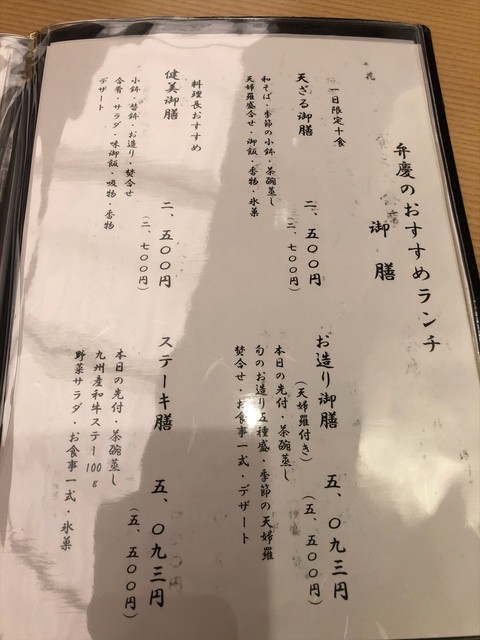 弁慶のおすすめランチ
御膳
一日限定十食
天ざる御膳
二、五〇〇円
(二、七〇〇円)
和そば・季節の小鉢・茶碗蒸し
天婦羅盛合せ・御飯・香物・氷菓
料理長おすすめ
健美御膳
二、五〇〇円
(二、七〇〇円)
小鉢・替鉢・お造り・焚合せ
合肴・サラダ・味御飯・吸物・香物
デザート
お造り御膳
(天婦羅付き)
五、〇九三円
(五、五〇〇円)
本日の先付・茶碗蒸し
旬のお造り五種盛・季節の天婦羅
焚合せ・お食事一式・デザート
ステーキ膳
五、〇九三円
(五、五〇〇円)
本日の先付・茶碗蒸し
九州産和牛ステーキ100g
野菜サラダ・お食事一式・氷菓